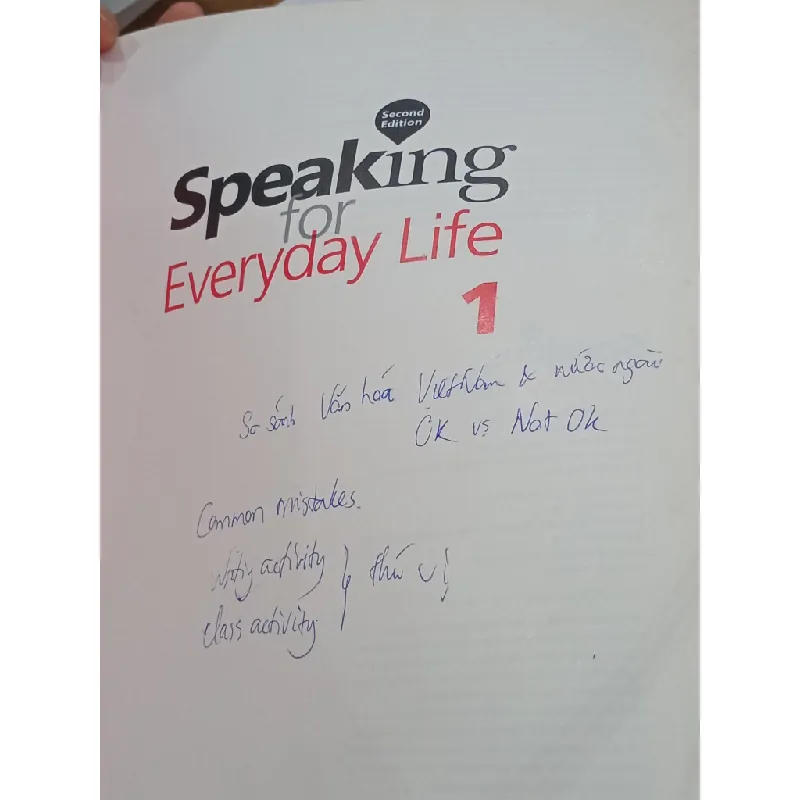 Second
Edition
Speaking
for
Everyday Life
1
So sánh Văn hoá Việt Nam & nước ngoài
Ok vs Not Ok
Common mistakes.
activity
thú vị
class activity